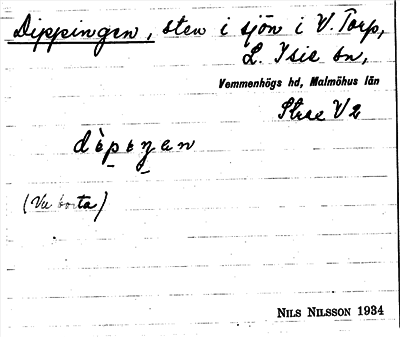 Dippingen, sten i sjön i V. Torp,
L. Isie sn,
Vemmenhögs hd, Malmöhus län
Skee V 2
dèpeŋan
(Nu borta)
NILS NILSSON 1934